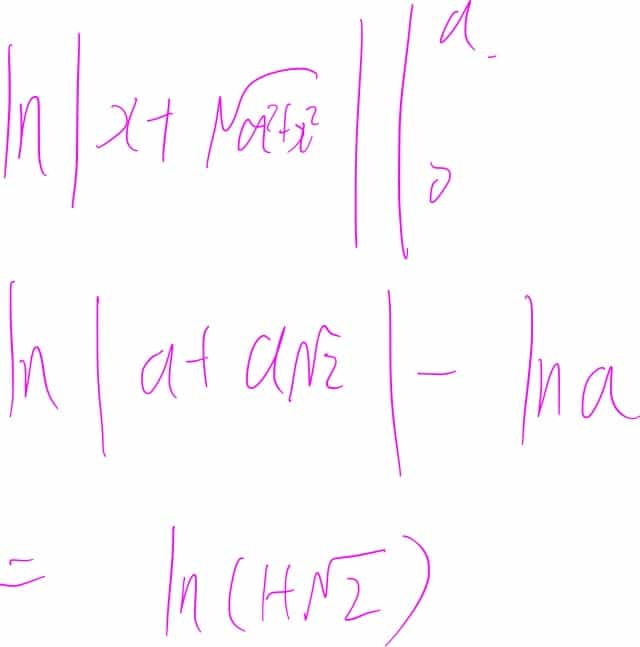 ln|x+√(a²+x²)||₀ᵃ
ln|a+a√2|-ln a
= ln(1+√2)